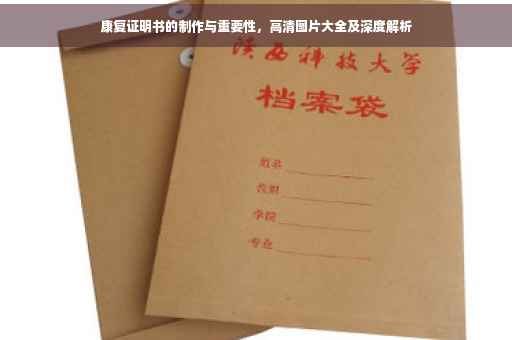 康复证明书的制作与重要性，高清图片大全及深度解析
陕西科技大学
档案袋
姓名
学院
专业